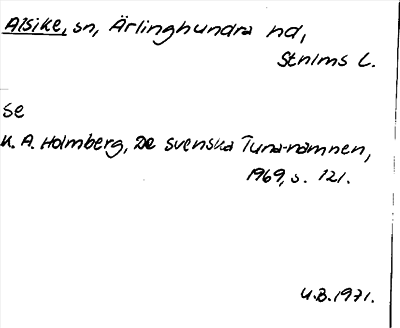 Alsike, sn, Ärlinghundra hd,
Stnlms L.
se
K. A. Holmberg, De svenska Tuna-namnen,
1969, s. 121.
U.B. 1971.